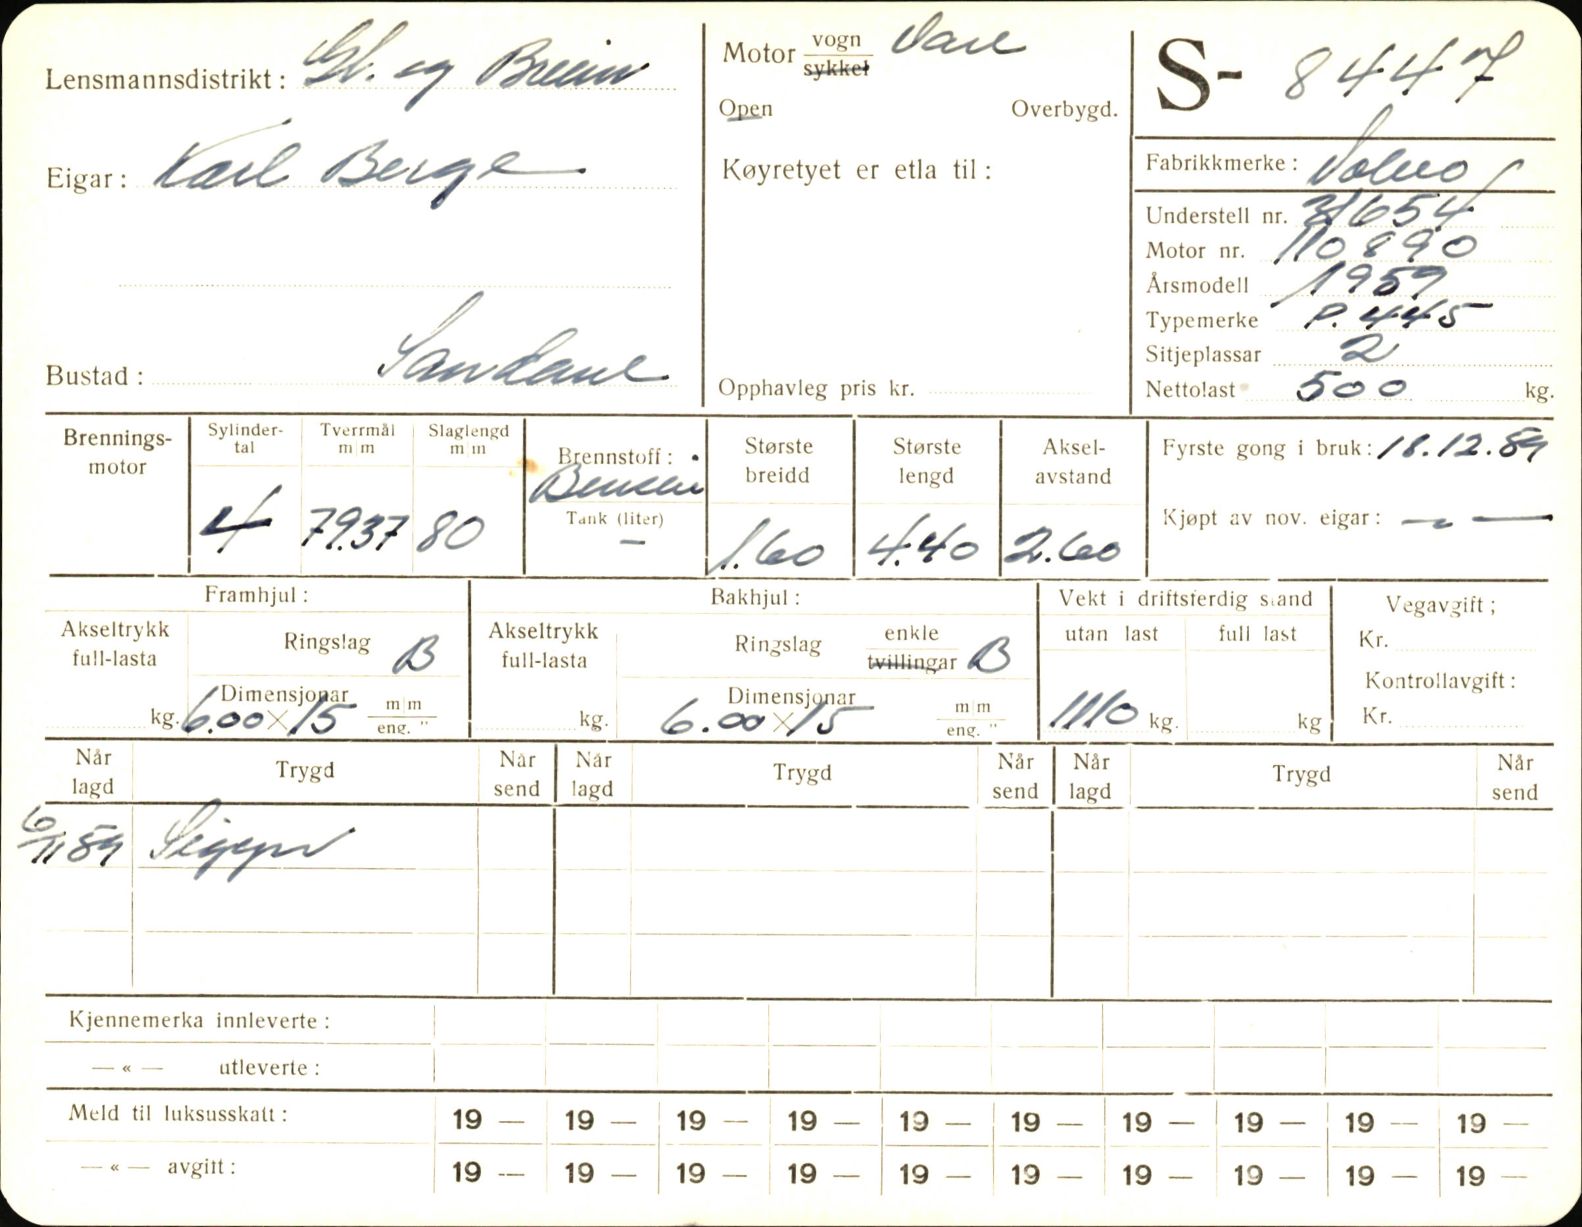 Lensmannsdistrikt: Gl. og Breim
Eigar: Karl Berge
Bustad: Sandane
Motor vogn Vare
sykkel
Open Overbygd.
Køyretyet er etla til:
Opphavleg pris kr.
S- 8447
Fabrikkmerke: Volvo
Understell nr. 31654
Motor nr. 110890
Årsmodell 1959
Typemerke P. 445
Sitjeplassar 2
Nettolast 500 kg.
Brennings-
motor
Sylinder-
tal
4
Tverrmål
m|m
79.37
Slaglengd
m|m
80
Brennstoff:
Bensin
Tank (liter)
—
Største
breidd
1.60
Største
lengd
4.40
Aksel-
avstand
2.60
Fyrste gong i bruk: 18.12.59
Kjøpt av nov. eigar: — " —
Framhjul:
Akseltrykk
full-lasta
kg.
Ringslag B
Dimensjonar
6.00 × 15 m|m
eng. "
Bakhjul:
Akseltrykk
full-lasta
kg.
Ringslag enkle
tvillingar B
Dimensjonar
6.00 × 15 m|m
eng. "
Vekt i driftsferdig stand
utan last full last
1110 kg. kg
Vegavgift;
Kr.
Kontrollavgift:
Kr.
Når
lagd Trygd Når
send Når
lagd Trygd Når
send Når
lagd Trygd Når
send
6/11 59
Kjennemerka innleverte:
— « — utleverte:
Meld til luksusskatt: 19 — 19 — 19 — 19 — 19 — 19 — 19 — 19 — 19 — 19 —
— « — avgitt: 19 — 19 — 19 — 19 — 19 — 19 — 19 — 19 — 19 — 19 —